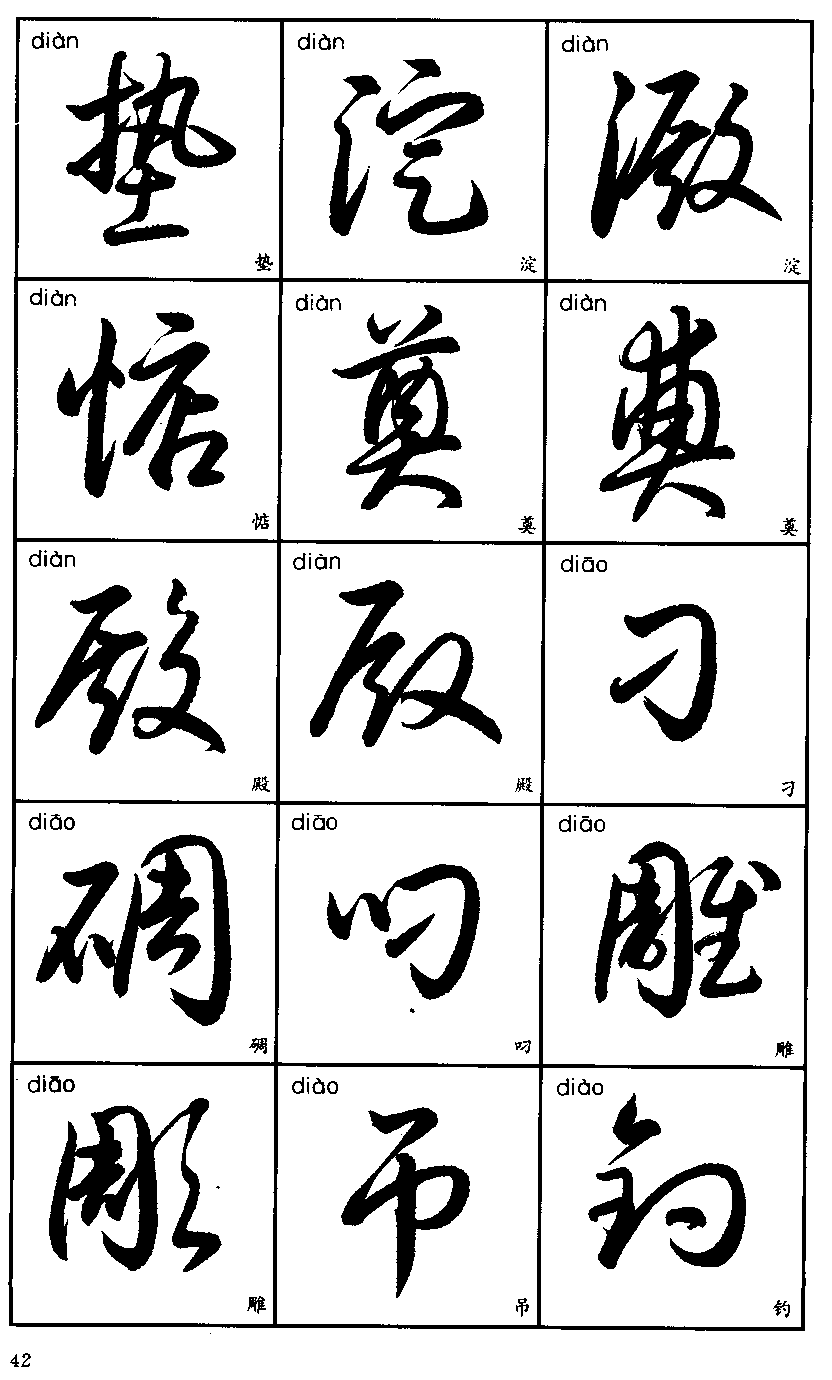 diàn diàn diàn
垫 淀 澱
垫 淀 淀
diàn diàn diàn
惦 奠 奠
惦 奠 奠
diàn diàn diāo
殿 殿 刁
殿 殿 刁
diāo diāo diāo
碉 叼 雕
碉 叼 雕
diāo diào diào
彫 吊 钓
雕 吊 钓
42